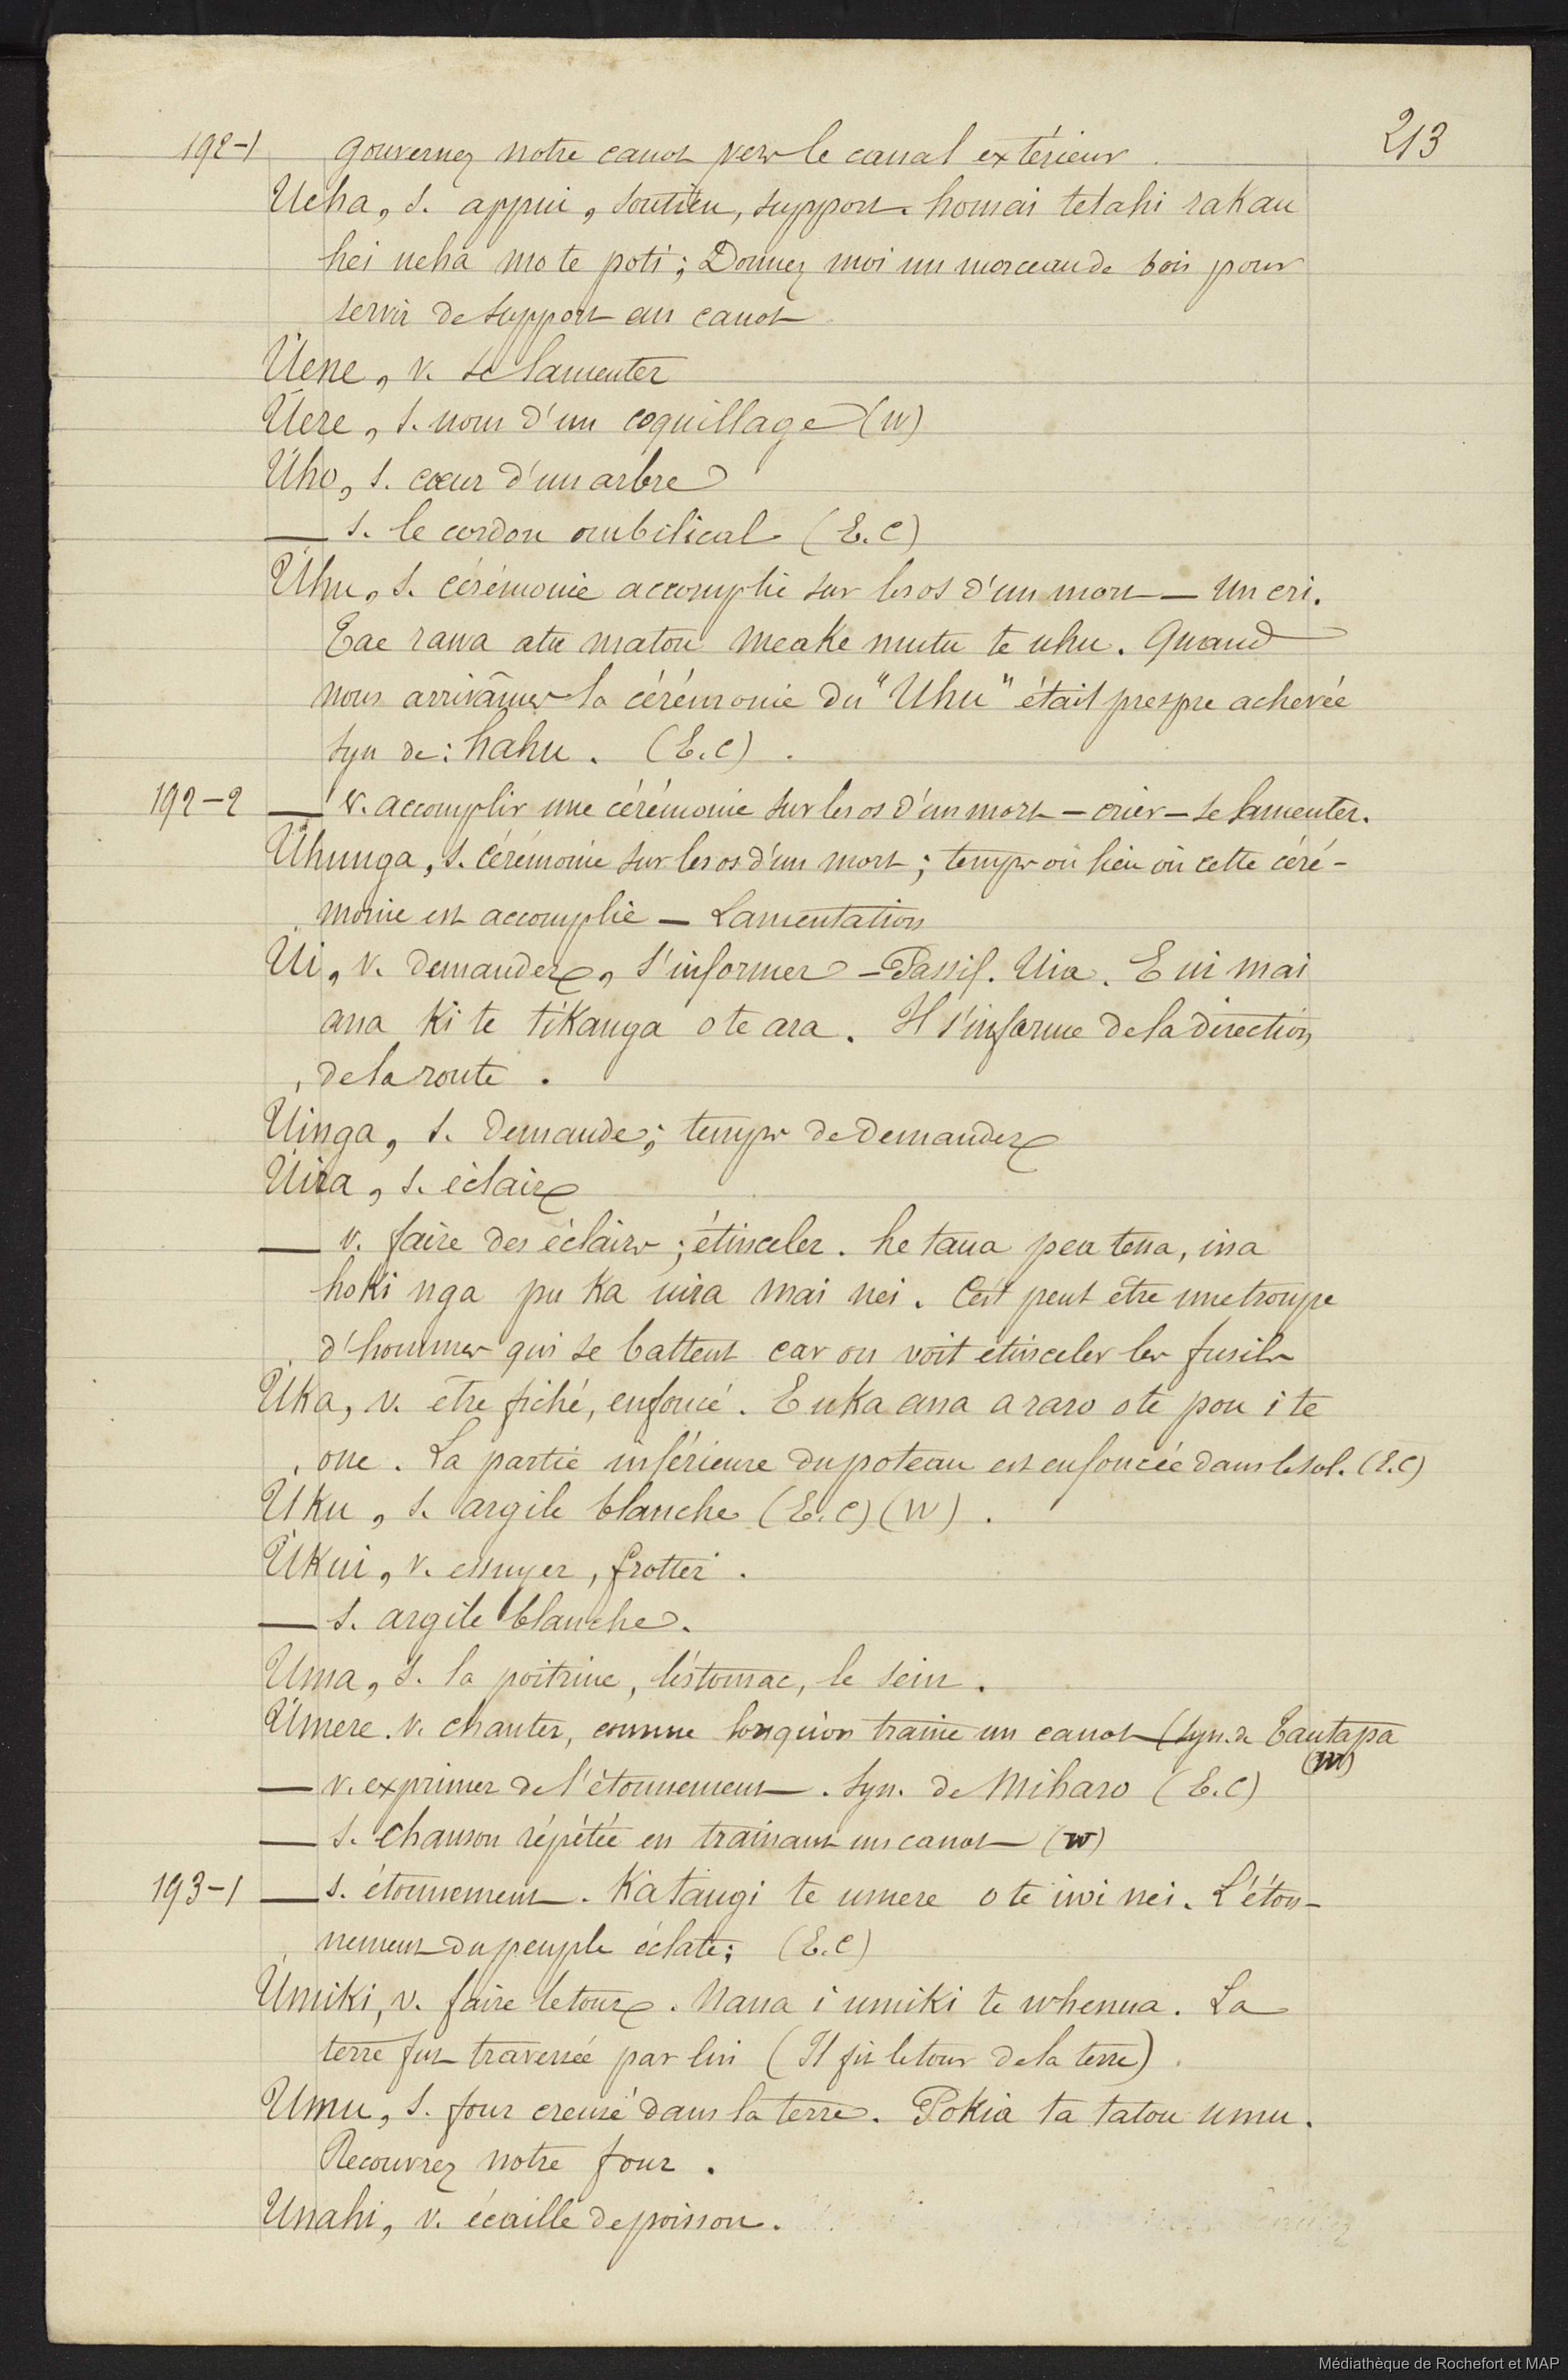 213
192-1 gouvernez notre canot vers le canal extérieur.
Ueha, s. appui, soutien, support. homai tetahi rakau
hei ueha mo te poti; Donnez moi un morceau de bois pour
servir de support au canot
Uene, v. se lamenter
Uere, s. nom d'un coquillage (W)
Uho, s. cœur d'un arbre
— s. le cordon ombilical (E.C)
Uhu, s. cérémonie accomplie sur les os d'un mort — Un cri.
Tae rawa atu matou meake mutu te uhu. Quand
nous arrivâmes la cérémonie du "Uhu" était presque achevée
syn de: hahu. (E.C).
192-2 — v. accomplir une cérémonie sur les os d'un mort — crier — se lamenter.
Uhunga, s. cérémonie sur les os d'un mort; temps où lieu où cette céré-
monie est accomplie — Lamentation
Ui, v. demander, s'informer — Passif. Uia. E ui mai
ana ki te tikanga o te ara. Il s'informe de la direction
de la route.
Uinga, s. demande; temps de demander
Uira, s. éclair
— v. faire des éclairs; étinceler. he taua pea tena, ina
hoki nga pu ka uira mai nei. C'est peut être une troupe
d'hommes qui se battent car on voit étinceler les fusils
Uka, v. être fiché, enfoncé. E uka ana a raro o te pou i te
one. La partie inférieure du poteau est enfoncée dans le sol. (E.C)
Uku, s. argile blanche (E.C) (W).
Ukui, v. essuyer, frotter.
— s. argile blanche.
Uma, s. la poitrine, l'éstomac, le sein.
Umere. v. chanter, comme lorsqu'on traine un canot (syn. de Tautapa
(W)
— v. exprimer de l'étonnement. Syn. de Miharo (E.C)
— s. Chanson répétée en trainant un canot (W)
193-1 — s. étonnement. Ka tangi te umere o te iwi nei. L'éton-
nement du peuple éclate; (E.C)
Umiki, v. faire le tour. Nana i umiki te whenua. La
terre fut traversée par lui (Il fit le tour de la terre).
Umu, s. four creusé dans la terre. Pokia ta tatou umu.
Recouvrez notre four.
Unahi, v. écaille de poisson.
Médiathèque de Rochefort et MAP